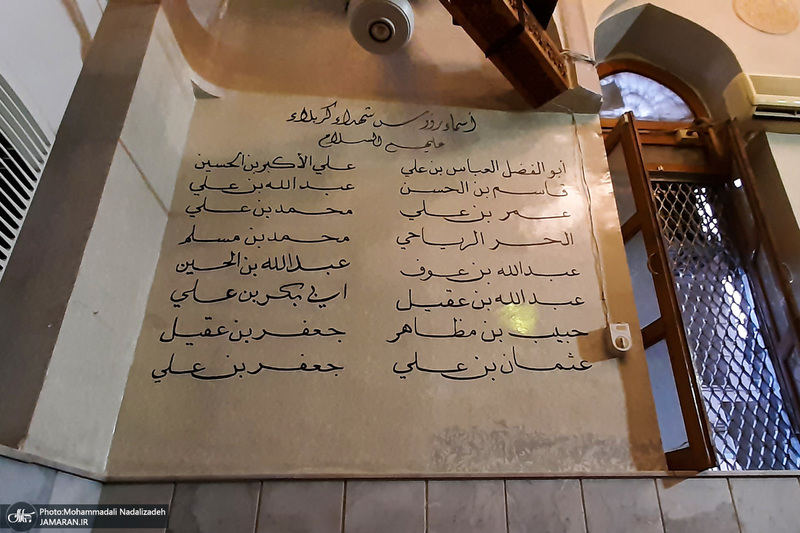 أسماء رؤوس شهداء كربلاء
عليهم السلام
أبو الفضل العباس بن علي علي الأكبر بن الحسين
قاسم بن الحسن عبد الله بن علي
عمر بن علي محمد بن علي
الحر الرياحي محمد بن مسلم
عبد الله بن عوف عبد الله بن الحسين
عبد الله بن عقيل ابي بكر بن علي
حبيب بن مظاهر جعفر بن عقيل
عثمان بن علي جعفر بن علي
Photo:Mohammadali Nadalizadeh
JAMARAN.IR